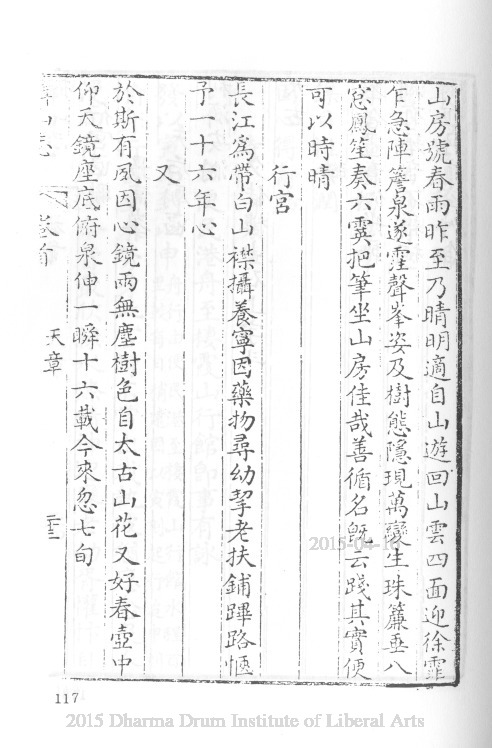 山房號春雨昨至乃晴明適自山遊回山雲四面迎徐霏
乍急陣簷泉遂霔聲峯姿及樹態隱現萬變生珠簾垂八
窓鳳笙奏六霙把筆坐山房佳哉善循名旣云踐其實便
可以時晴
行宮
長江爲帶白山襟攝養寧因藥物尋幼挈老扶鋪蹕路愜
予一十六年心
又
於斯有風因心鏡雨無塵樹色自太古山花又好春壺中
仰天鏡座底俯泉伸一瞬十六載今來忽七旬
山志
卷首
天章
2015-04-10
117
2015 Dharma Drum Institute of Liberal Arts